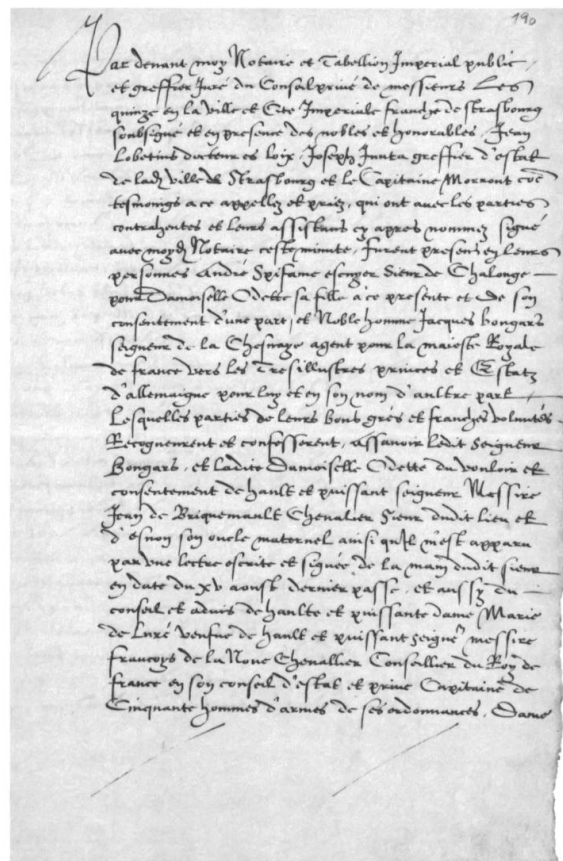 190
Par devant moy Notaire et Tabellion Imperial public,
et greffier Juré du Conseil privé de messieurs Les
quinze en la ville et Cité Imperiale franche de strasbourg
soubsigné et en presence des nobles et honorables, Jean
Lobetius docteur es loix, Joseph Junta greffier d'estat
de lad. ville de Strasbourg et le Capitaine Morront
tesmoings a ce appellez et priez, qui ont avec les parties
contrahentes et leurs assistans cy apres nommez signé
avec moyd. Notaire ceste minute, furent presens en leurs
personnes André Spifame escuyer Sieur de Chalonge
pour Damoiselle Odette sa fille a ce presente et de son
consentement d'une part, et Noble homme Jacques Bongars
seigneur de la Chesnaye agent pour la maiesté Royale
de france vers les Tresillustres princes et Estatz
d'allemaigne pour luy et en son nom d'aultre part,
Lesquelles parties de leurs bons grés et franches volontés
Recogneurent et confesserent, assavoir ledit Seigneur
Bongars, et ladite Damoiselle Odette du vouloir et
consentement de hault et puissant seigneur Messire
Jean de Briquemault Chevalier Sieur dudit lieu et
son oncle maternel ainsi qu'il m'est apparu
par une lettre escrite et signée de la main dudit sieur
en date du XV aoust dernier passé, et aussy du
conseil et advis de haulte et puissante dame Marie
de Luré vefue de hault et puissant seignr messire
Françoys de la Noue Chevallier Consellier du Roy de
France en son conseil d'estat et privé Capitaine de
Cinquante hommes d'armes de ses ordonnances, Dame